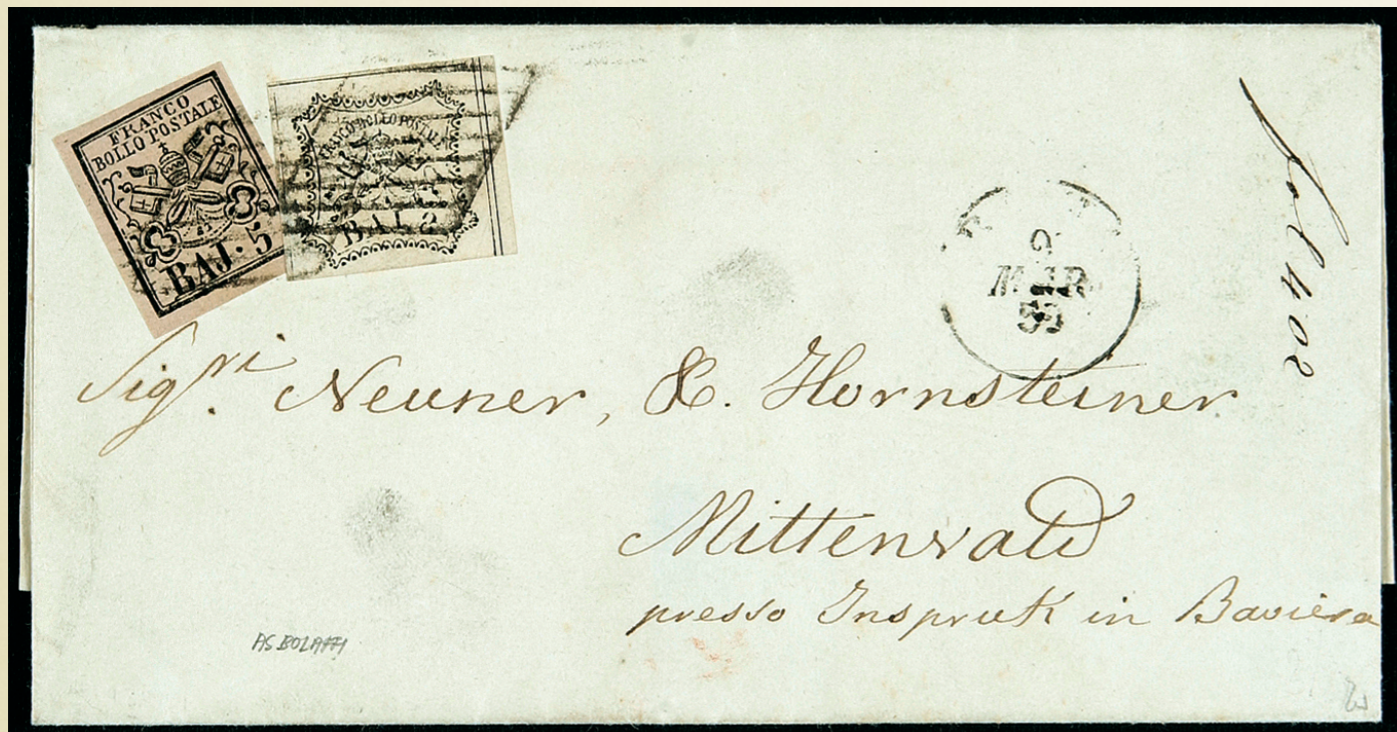 FRANCO
BOLLO POSTALE
BAJ. 5
FRANCO BOLLO POSTALE
BAJ. 8
9
MAR
55
fol 402
Sig.ri Neuner, & Hornsteiner
Mittenwald
presso Inspruk in Baviera
AS BOLAFFI